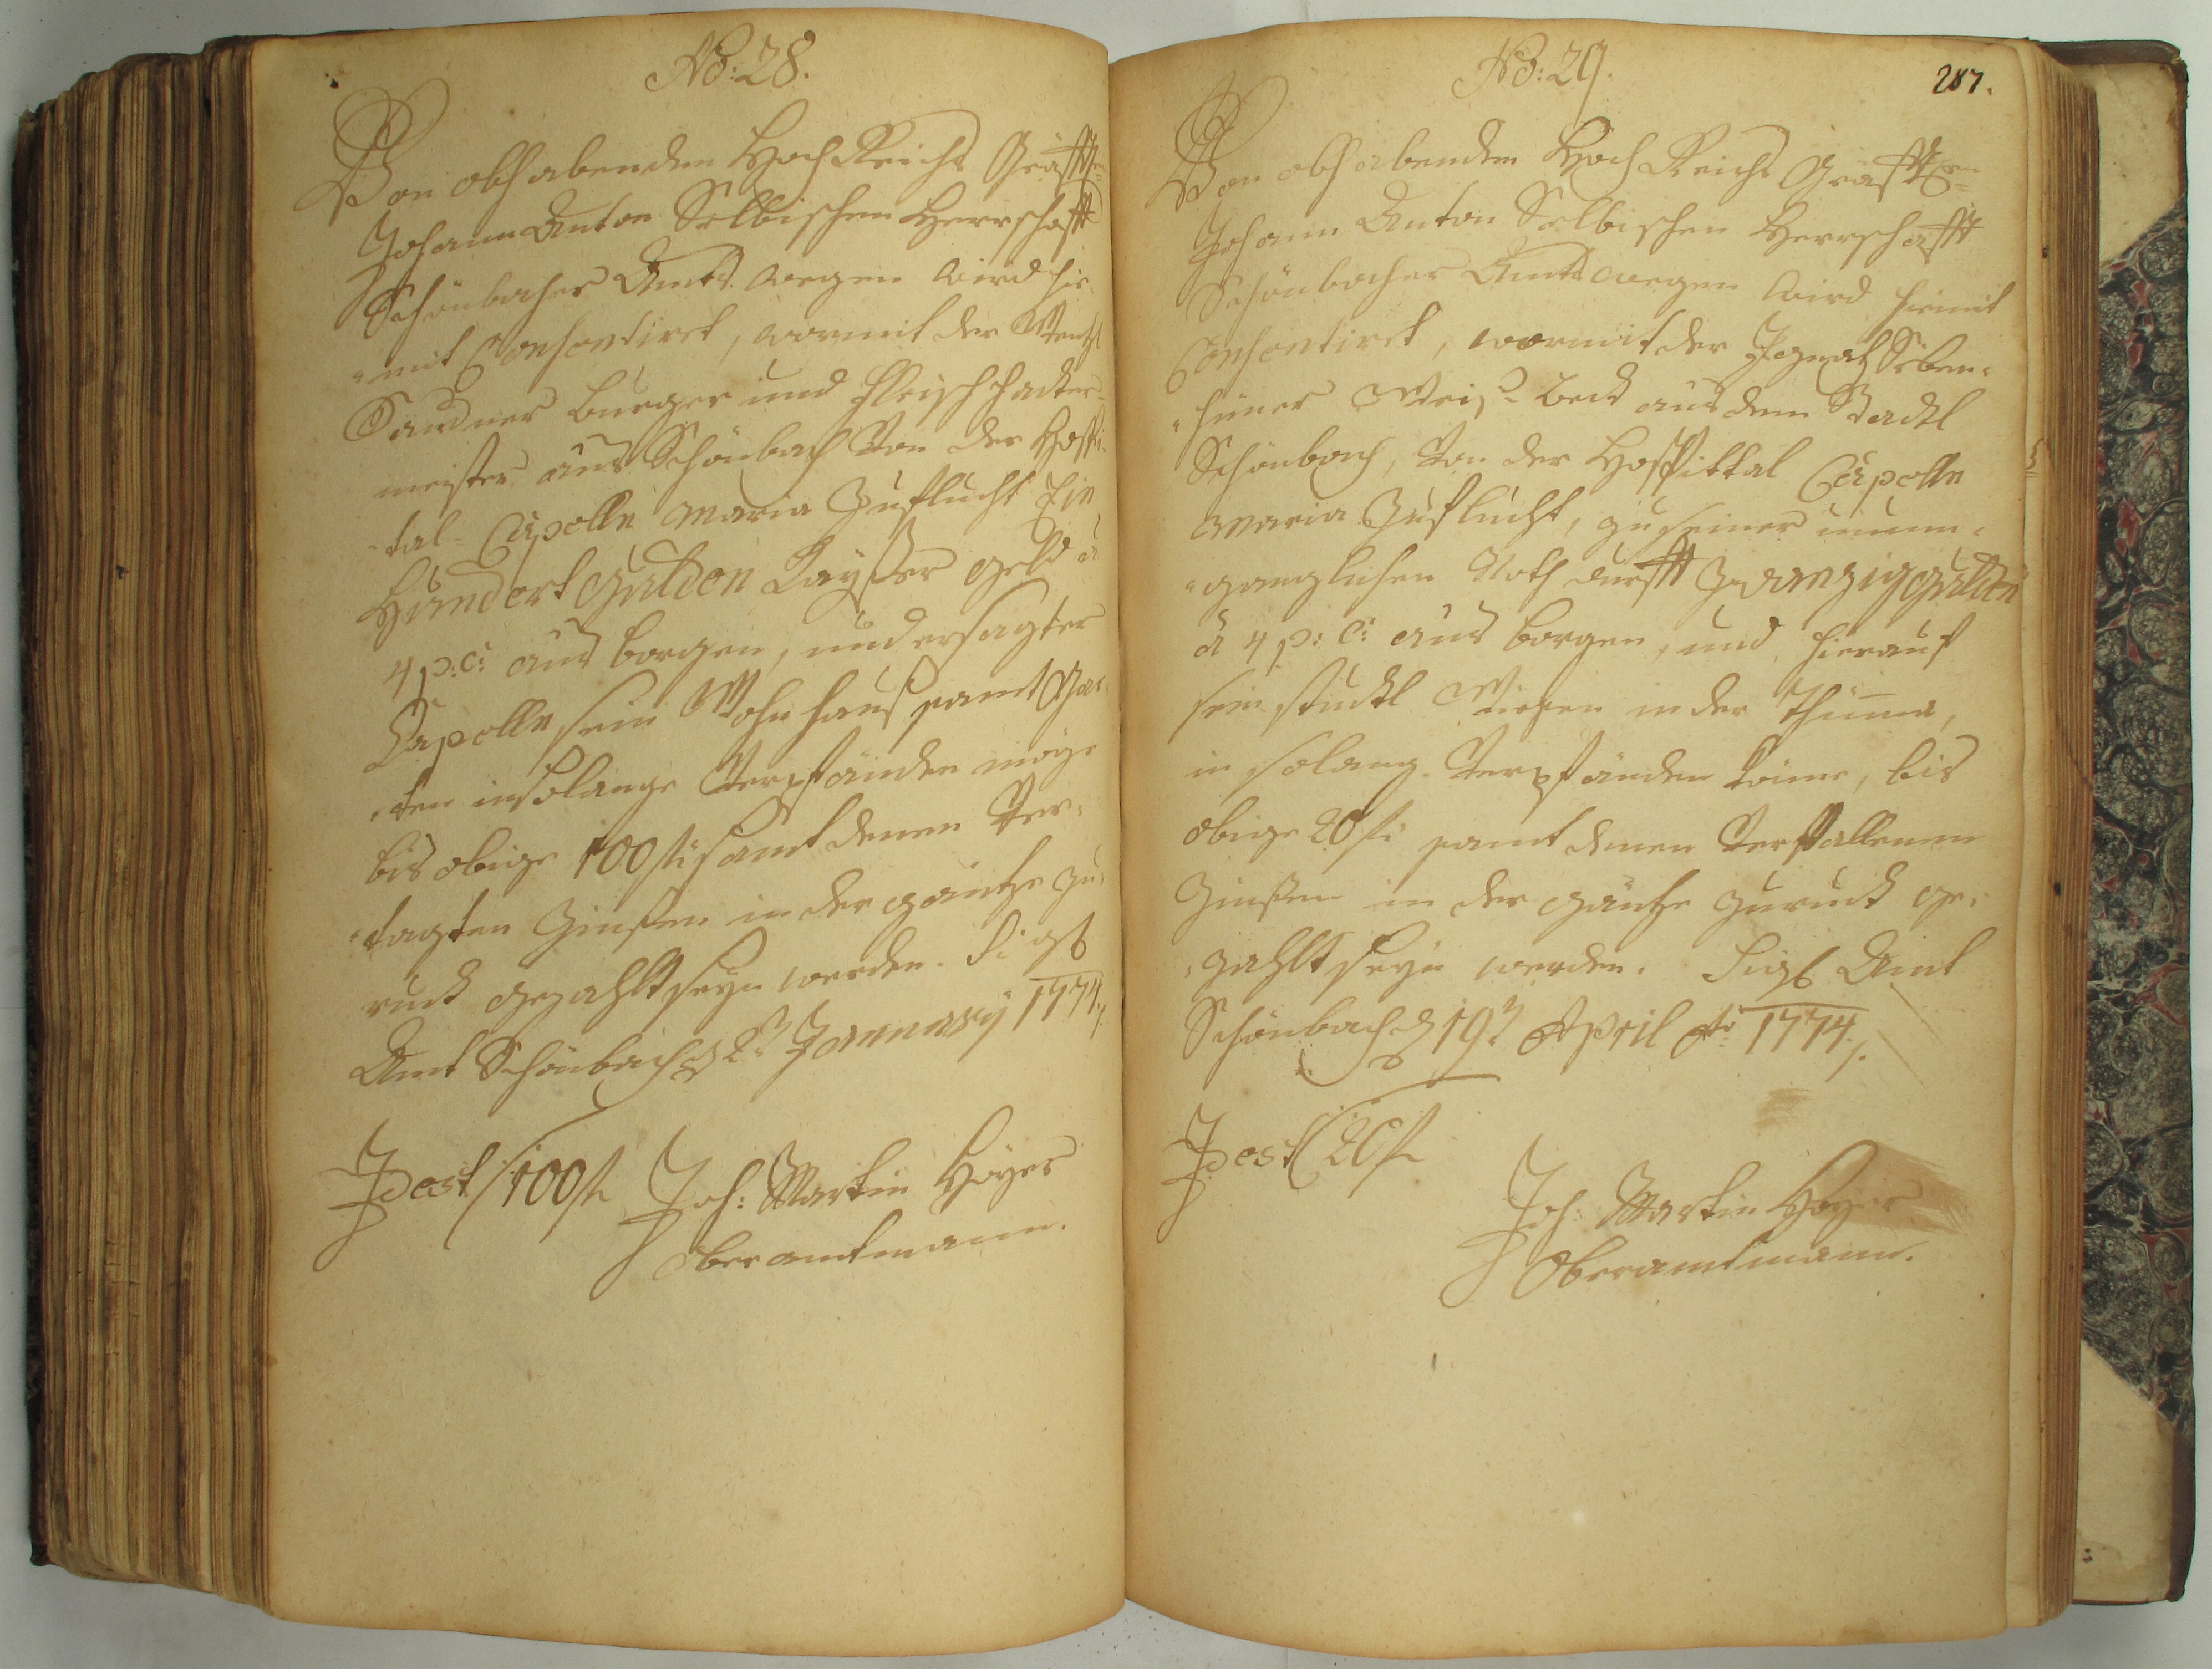 No: 28.
Von obhabenden Hoch Reichs Gräffl:
Johann Anton Selbischen Herrschafft
Schönbacher Ambts wegen wird hie-
-mit Consentiret, wormit der
burger und Fleischhacker-
meister aus Schönbach Von der Hospi-
-tal-Capelle Maria Zuflucht Ein
Hundert gulden Kayßer geld à
4 p: c: aus borgen, und ersagter
Capelle sein Wohnhauß samt Gar-
-ten insolange Verpfänden möge
bis obige 100 fl: samt denen Ver-
-tagten Zinßen in der gäntze zu-
ruck gezahlt seyn werden. Sigl
Amt Schönbach d 2t January 1774./.
Id est / 100 fl Joh: Martin Hoyer
Oberamtmann.
No: 29.
287.
Von obhabenden Hoch Reichs Gräffl:
Johann Anton Selbischen Herrschafft
Schönbacher Ambts wegen wird hiemit
Consentiret, wormit der Ignatz Sieben-
-hüner Weiß-beck aus dem Stadtl
Schönbach, Von der Hospittal Capelle
Maria Zuflucht, zu seiner unum-
-gänglichen Nothdurfft Zwanzig gulden
à 4 p: c: aus borgen, und hierauf
sein stuckl Wiesen in der
in solang Verpfänden könne, bis
obige 20 fl: samt denen Verfallenen
Zinßen in der gäntze zuruck ge-
-zahlt seyn werden. Sigl Amt
Schönbach d 19t April ao 1774./.
Id est / 20 fl
Joh: Martin Hoyer
Oberamtmann.